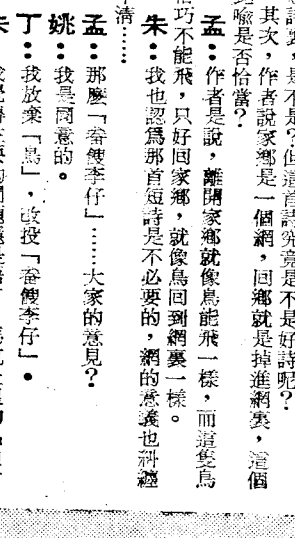 詩歌,是不是?但這首詩究竟是不是好詩呢?
其次,作者說家鄉是一個網,回鄉就是掉進網裏,這個
喻是否恰當?
孟:作者是說,離開家鄉就像鳥能飛一樣,而這隻鳥
恰巧不能飛,只好回家鄉,就像鳥回到網裏一樣。
朱:我也認爲那首短詩是不必要的,網的意義也糾纏
清……
孟:那麼「番饅李仔」……大家的意見?
姚:我是同意的。
丁:我放棄「鳥」,改投「番饅李仔」。